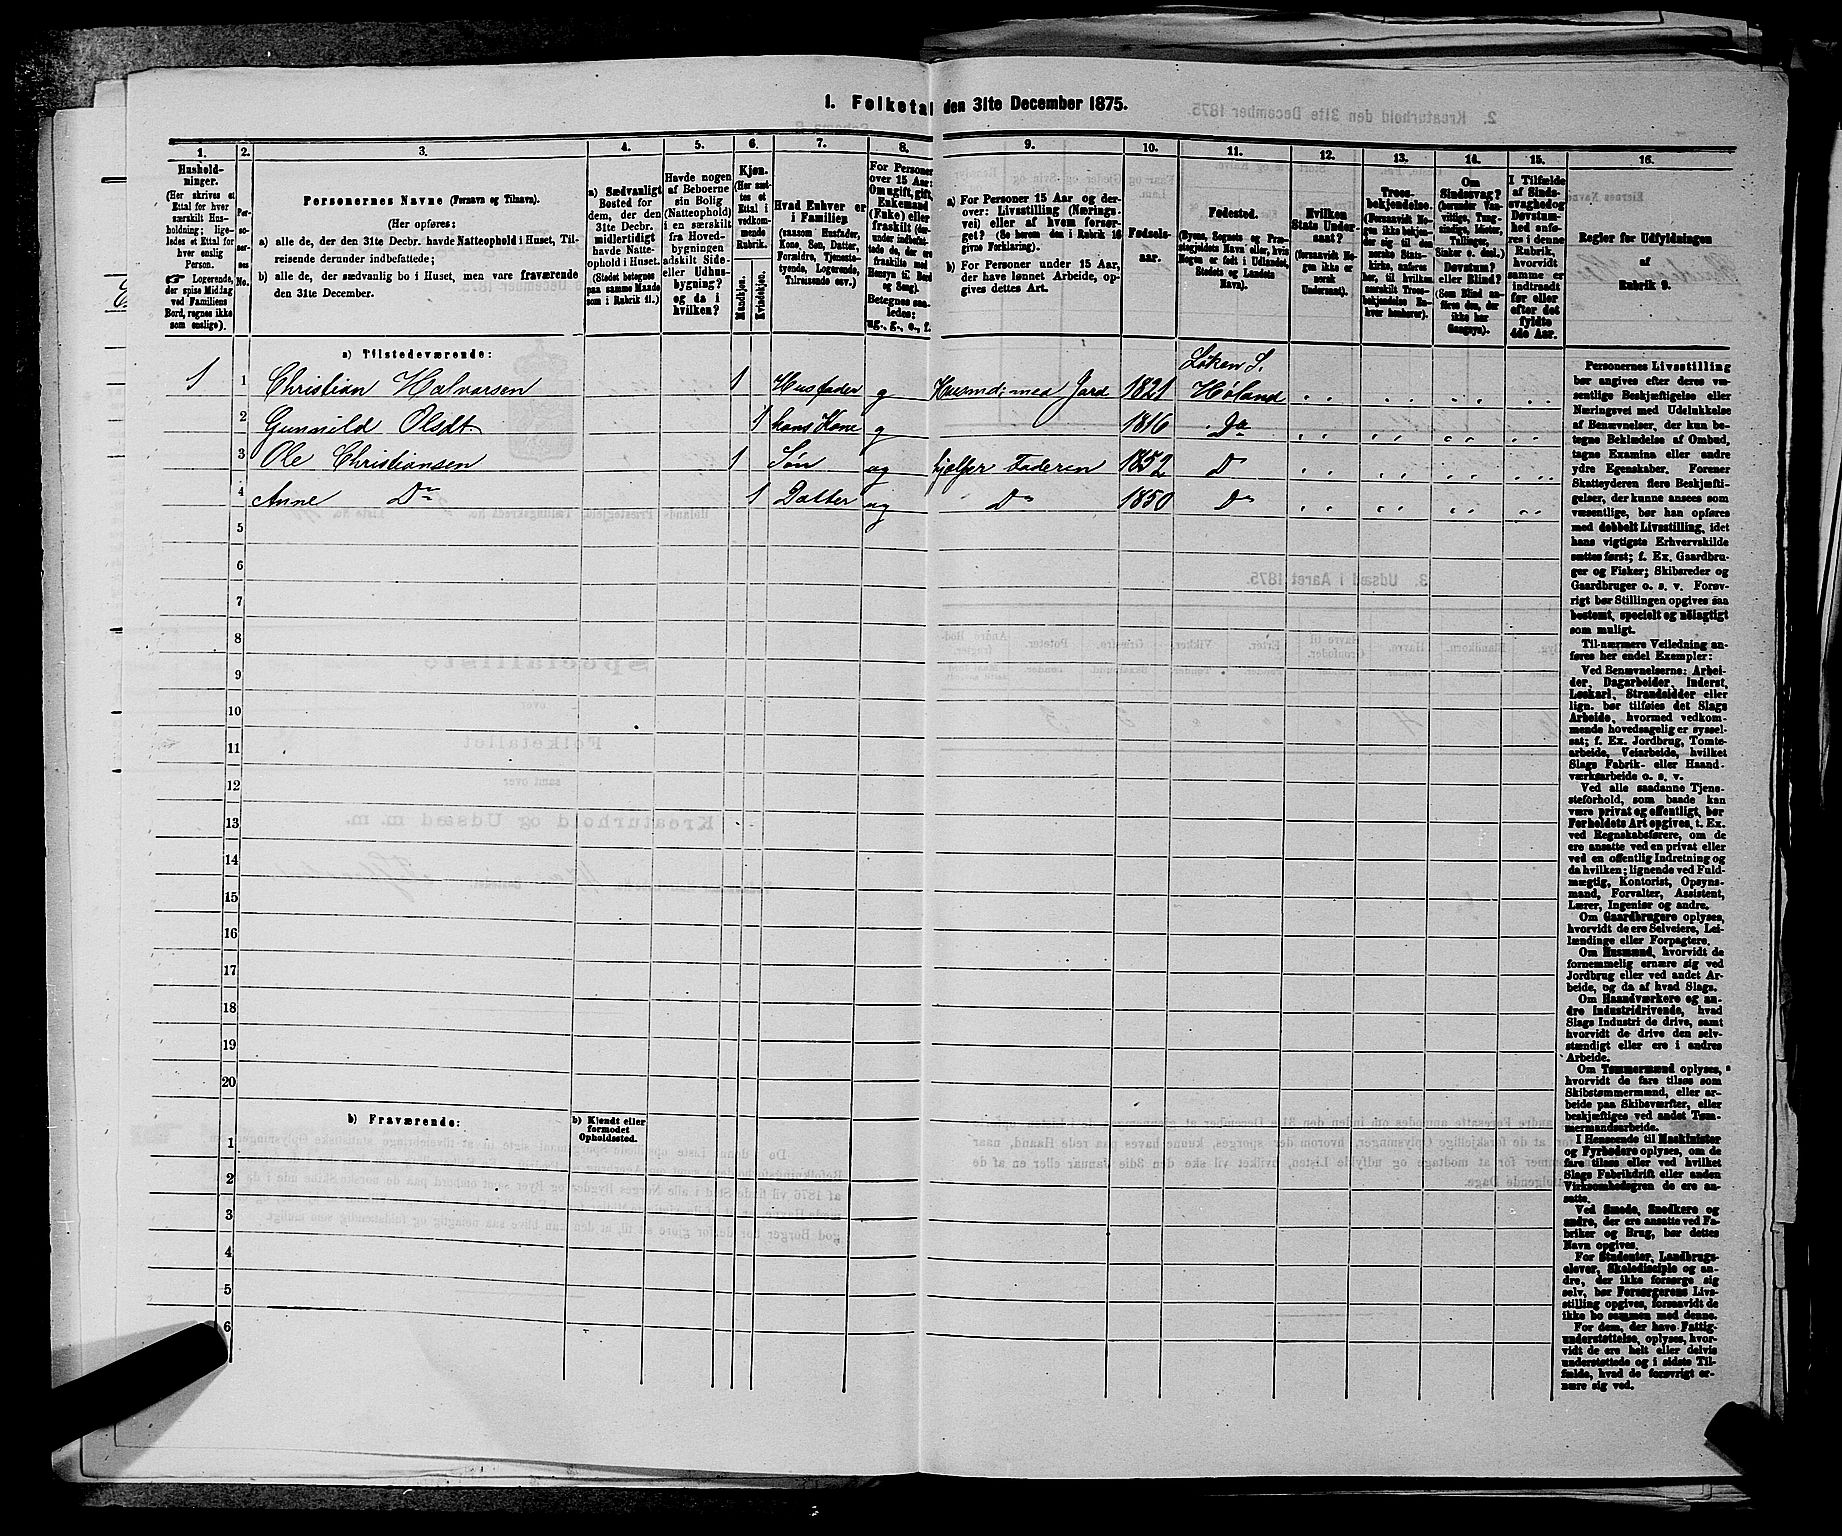 1. Folketal den 31te December 1875.
1. 2. 3. 4. 5. 6. 7. 8. 9. 10. 11. 12. 13. 14. 15. 16.
Hushold-
ninger.
(Her skrives et
Ettal for hver
særskilt Hus-
holdning; lige-
ledes et Ettal for
hver enslig
Person.
☞ Logerende,
der spise Middag
ved Familiens
Bord, regnes ikke
som enslige).
Per-
so-
ner-
nes
No.
Personernes Navne (Fornavn og Tilnavn).
(Her opføres:
a) alle de, der den 31te Decbr. havde Natteophold i Huset, Til-
reisende derunder indbefattede;
b) alle de, der sædvanlig bo i Huset, men vare fraværende
den 31te December.
a) Sædvanligt
Bosted for
dem, der den
31te Decbr.
midlertidigt
havde Natte-
ophold i Huset.
(Stedet betegnes
paa samme Maade
som i Rubrik 11.)
Havde nogen
af Beboerne
sin Bolig
(Natteophold)
i en særskilt
fra Hoved-
bygningen
adskilt Side-
eller Udhus-
bygning?
og da i
hvilken?
Kjøn.
(Her sæt-
tes et
Ettal i
vedkom-
mende
Rubrik.
Mandkjøn.
Kvindekjøn.
Hvad Enhver er
i Familien
(saasom Husfader,
Kone, Søn, Datter,
Forældre, Tjeneste-
tyende, Logerende,
Tilreisende osv.)
For Personer
over 15 Aar:
Om ugift, gift,
Enkemand
(Enke) eller
fraskilt (der-
under indbefat-
tede, de, der ere
fraskilte med
Hensyn til Bord
og Seng).
Betegnes saa-
ledes:
ug., g., e., f.
a) For Personer 15 Aar og der-
over: Livsstilling (Nærings-
vei) eller af hvem forsør-
get? (Se herom den i Rubrik 16
givne Forklaring).
b) For Personer under 15 Aar,
der have lønnet Arbeide, op-
gives dettes Art.
Fødsels-
aar.
Fødested.
(Byens, Sognets og Præ-
stegjeldets Navn eller, hvis
Nogen er født i Udlandet,
Stedets og Landets
Navn).
Hvilken
Stats Under-
saat?
(forsaavidt No-
gen ikke er
norsk
Undersaat).
Troes-
bekjendelse.
(Forsaavidt No-
gen ikke bekjen-
der sig til den
norske Stats-
kirke, anføres
her, til hvilken
særskilt Troes-
bekjendelse En-
hver henhører).
Om
Sindssvag?
(herunder Van-
vittige, Tung-
sindige, Idioter,
Tullinger,
Sinker o. desl.)
Døvstum?
eller Blind?
(Som Blind an-
føres den, der
ikke har
Gangsyn).
I Tilfælde
af Sinds-
svaghed og
Døvstum-
hed anfø-
res i denne
Rubrik,
hvorvidt
samme er
indtraadt
før eller
efter det
fyldte
4de Aar.
Regler for Udfyldningen
af
Rubrik 9.
a) Tilstedeværende:
Løken S.
1 1 Christian Halvorsen 1 Husfader g Husmd: med Jord 1821 Høland
2 Gunnild Olsdt 1 hans Kone g 1816 Do
3 Ole Christiansen 1 Søn ug hjælper Faderen 1852 Do
4 Anne Do 1 Datter ug Do 1850 Do
5
6
7
8
9
10
11
12
13
14
15
16
17
18
19
20
b) Fraværende:
b) Kjendt eller
formodet
Opholdssted.
1
2
3
4
5
6
Personernes Livsstilling
bør angives efter deres væ-
sentlige Beskjæftigelse eller
Næringsvei med Udelukkelse
af Benævnelser, der kun be-
tegne Beklædelse af Ombud,
tagne Examina eller andre
ydre Egenskaber. Forener
Skatteyderen flere Beskjæfti-
gelser, der kunne ansees som
væsentlige, bør han opføres
med dobbelt Livsstilling, idet
hans vigtigste Erhvervskilde
sættes først; f. Ex. Gaardbru-
ger og Fisker; Skibsreder og
Gaardbruger o. s. v. Forøv-
rigt bør Stillingen opgives saa
bestemt, specielt og nøiagtigt
som muligt.
Til nærmere Veiledning an-
føres her endel Exempler:
Ved Benævnelserne: Arbei-
der, Dagarbeider, Inderst,
Løskarl, Strandsidder eller
lign. bør tilføies det Slags
Arbeide, hvormed vedkom-
mende hovedsagelig er syssel-
sat; f. Ex. Jordbrug, Tomte-
arbeide, Veiarbeide, hvilket
Slags Fabrik- eller Haand-
værksarbeide o. s. v.
Ved alle saadanne Tjene-
steforhold, som baade kan
være privat og offentligt, bør
Forholdets Art opgives, t. Ex.
ved Regnskabsførere, om de
ere ansatte ved en privat eller
ved en offentlig Indretning og
da hvilken; lignende ved Fuld-
mægtig, Kontorist, Opsyns-
mand, Forvalter, Assistent,
Lærer, Ingeniør og andre.
Om Gaardbrugere oplyses,
hvorvidt de ere Selveiere, Lei-
lændinge eller Forpagtere.
Om Husmænd, hvorvidt de
fornemmelig ernære sig ved
Jordbrug eller ved andet Ar-
beide, og da af hvad Slags.
Om Haandværkere og an-
dre Industridrivende, hvad
Slags Industri de drive, samt
hvorvidt de drive den selv-
stændigt eller ere i andres
Arbeide.
Om Tømmermænd oplyses,
hvorvidt de fare tilsøs som
Skibstømmermænd, eller ar-
beide paa Skibsværfter, eller
beskjæftiges ved andet Tøm-
mermandsarbeide.
I Henseende til Maskinister
og Fyrbødere oplyses, om de
fare tilsøs eller ved hvilket
Slags Fabrikdrift eller anden
Virksomhedsgren de ere an-
satte.
Ved Smede, Snedkere og
andre, der ere ansatte ved Fa-
briker og Brug, bør dettes
Navn opgives.
For Studenter, Landbrugs-
elever, Skoledisciple og an-
dre, der ikke forsørge sig
selv, bør Forsørgerens Livs-
stilling opgives, forsaavidt de
ikke bo sammen med denne.
For dem, der have Fattig-
understøttelse, oplyses, hvor-
vidt de ere helt eller delvis
understøttede og i sidste Til-
fælde, hvad de forøvrigt er-
nære sig ved.